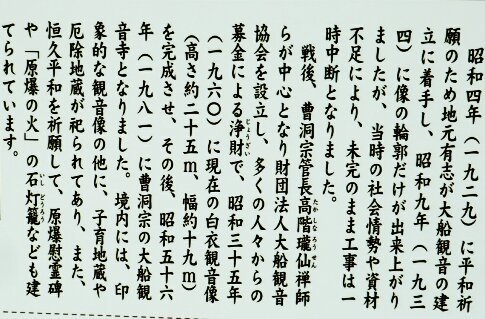 昭和四年（一九二九）に平和祈
願のため地元有志が大船観音の建
立に着手し、昭和九年（一九三
四）に像の輪郭だけが出来上がり
ましたが、当時の社会情勢や資材
不足により、未完のまま工事は一
時中断となりました。
戦後、曹洞宗管長高階瓏仙禅師
らが中心となり財団法人大船観音
協会を設立し、多くの人々からの
募金による浄財で、昭和三十五年
（一九六〇）に現在の白衣観音像
（高さ約二十五ｍ、幅約十九ｍ）
を完成させ、その後、昭和五十六
年（一九八一）に曹洞宗の大船観
音寺となりました。境内には、印
象的な観音像の他に、子育地蔵や
厄除地蔵が祀られてあり、また、
恒久平和を祈願して、原爆慰霊碑
や「原爆の火」の石灯籠なども建
てられています。